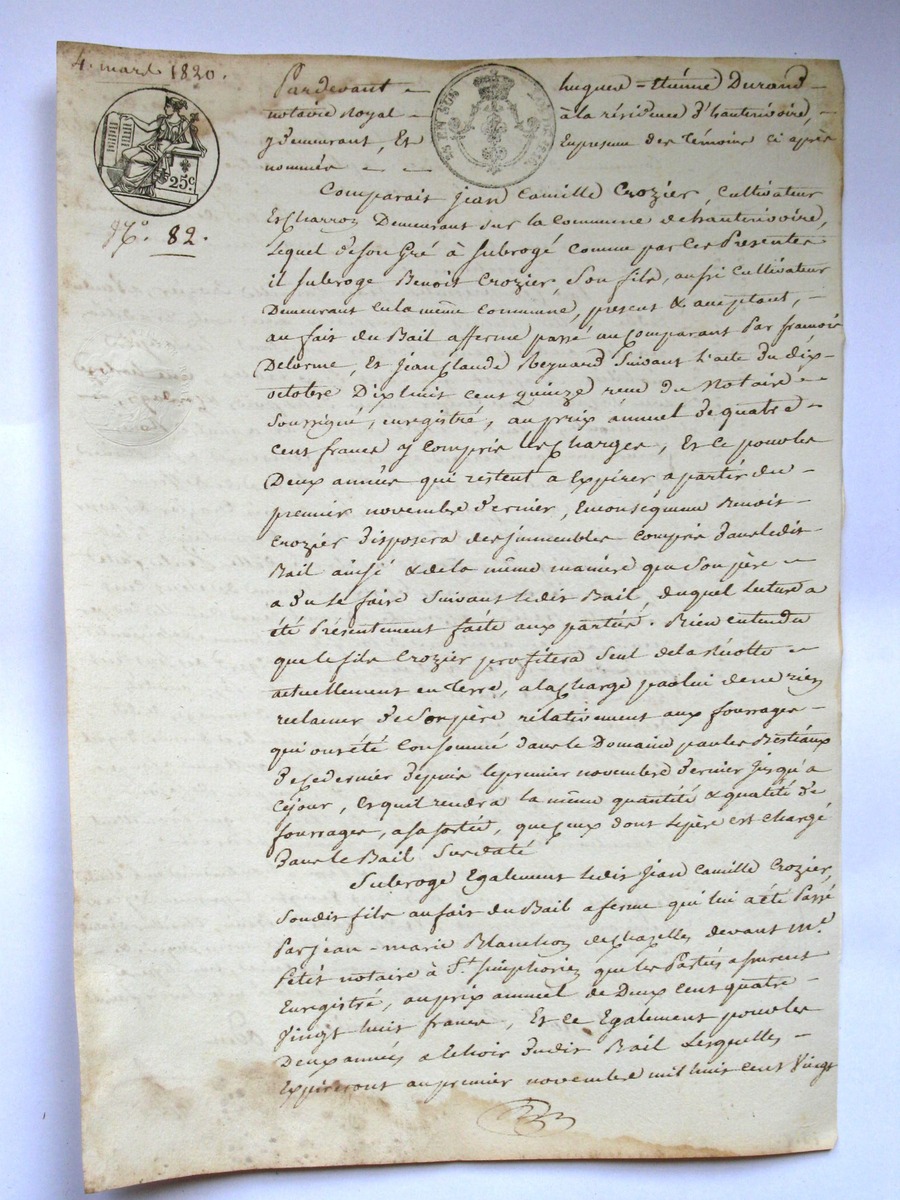 4. mars 1820.
25c
N.° 82.
Pardevant hugues = Etienne Durand
notaire Royal à la résidence d'hauterivoire,
y demeurant, Et En presence des Témoins ci après
nommés
Comparait jean Camille Crozier, Cultivateur
Et Charron Demeurant sur la Commune de hauterivoire,
Lequel de son Gré à subrogé comme par Ces Presentes
il subroge Benoit Crozier, son fils, aussi Cultivateur
Demeurant En la même Commune, present & aceptant,
au fait du Bail a fferme passé au Comparant Par francois
Delorme, Et Jean Claude Reynard suivant l'acte du dix
octobre Dix huit cent quinze reçu du Notaire
soussigné, enregistré, au prix annuel de quatre
cent francs y compris les Charges, Et ce pour les
Deux années qui restent a Expirer a partir du
premier novembre dernier, En conséquence Benoit
Crozier disposera des immeubles compris dans ledit
Bail ainsi & de la même manière que son père
a du le faire suivant ledit Bail, duquel Lecture a
été Présentement faite aux parties. Bien entendu
que le fils Crozier profitera seul de la récolte
actuellement en Terre, a la Charge par lui de ne rien
reclamer de son père relativement aux fourrages
qui ont été Consommé dans le Domaine par les Bestiaux
de ce dernier depuis le premier novembre dernier jusqu'a
ce jour, Et quil rendra la même quantité & qualité de
fourrages, a sa sortie, que Ceux dont le père est chargé
Dans le Bail susdaté
Subroge Egalement ledit jean Camille Crozier,
soudit fils au fait du Bail a ferme qui lui a été Passé
Par jean-marie Blanchon de Chazelles devant m.e
Petit notaire à S.t simphorien que les Parties assurent
Enregistré, au prix annuel de Deux Cent quatre
Vingt huit francs, Et ce Egalement pour les
Deux années a Echoir dudit Bail Lesquelles
Expireront au premier novembre mil huit cent Vingt